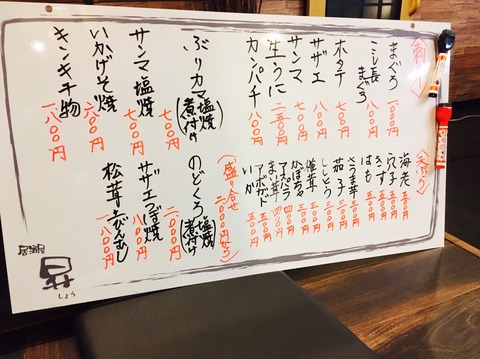 （刺し）
まぐろ 一〇〇〇円
こし長まぐろ 八〇〇円
ホタテ 七〇〇円
サザエ 八〇〇円
サンマ 七〇〇円
生うに 二五〇〇円
カンパチ 八〇〇円
（天ぷら）
海老 五〇〇円
穴子 五〇〇円
きす 五〇〇円
はも
さつま芋 三〇〇円
茄子 三〇〇円
ししとう 三〇〇円
椎茸 三〇〇円
かぼちゃ 三〇〇円
アスパラ 四〇〇円
まい茸 四〇〇円
アボガド 五〇〇円
いか 五〇〇円
（盛り合せ 二〇〇〇円から）
ぶりカマ塩焼（煮付け） 七〇〇円
サンマ塩焼 七〇〇円
いかげそ焼 六〇〇円
キンキ干物 一八〇〇円
のどぐろ塩焼（煮付け） 二〇〇〇円
サザエつぼ焼 八〇〇円
松茸土びんむし 一八〇〇円
居酒屋
昇
しょう